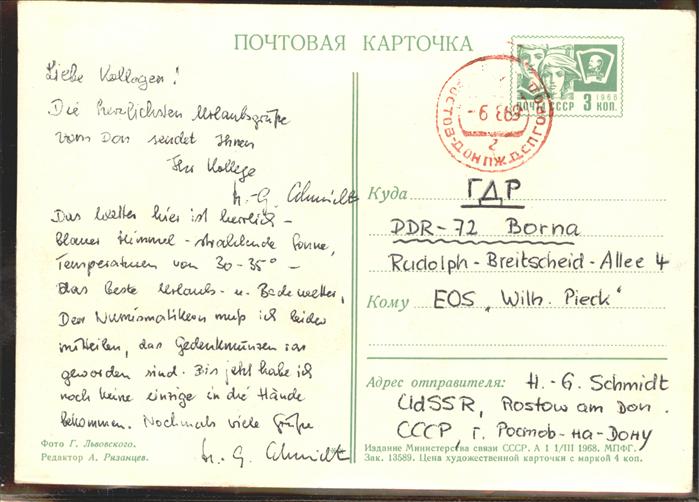 ПОЧТОВАЯ КАРТОЧКА
ПОЧТА СССР 3 КОП.
1968
Liebe Kollegen!
Die herzlichsten Urlaubsgrüße
vom Don sendet Ihnen
Ihr Kollege
H.-G. Schmidt
Das Wetter hier ist herrlich –
blauer Himmel - strahlende Sonne,
Temperaturen von 30-35° –
das beste Urlaubs- u. Badewetter.
Den Numismatikern muß ich leider
mitteilen, das Gedenkmünzen rar
geworden sind. Bis jetzt habe ich
noch keine einzige in die Hände
bekommen. Nochmals viele Grüße
H. G. Schmidt
Фото Г. Львовского.
Редактор А. Рязанцев.
Куда ГДР
DDR-72 Borna
Rudolph-Breitscheid-Allee 4
Кому EOS „Wilh. Pieck"
Адрес отправителя: H.-G. Schmidt
UdSSR, Rostow am Don.
СССР, г. Ростов-на-Дону
Издание Министерства связи СССР. А 1 1/III 1968. МПФГ.
Зак. 13589. Цена художественной карточки с маркой 4 коп.